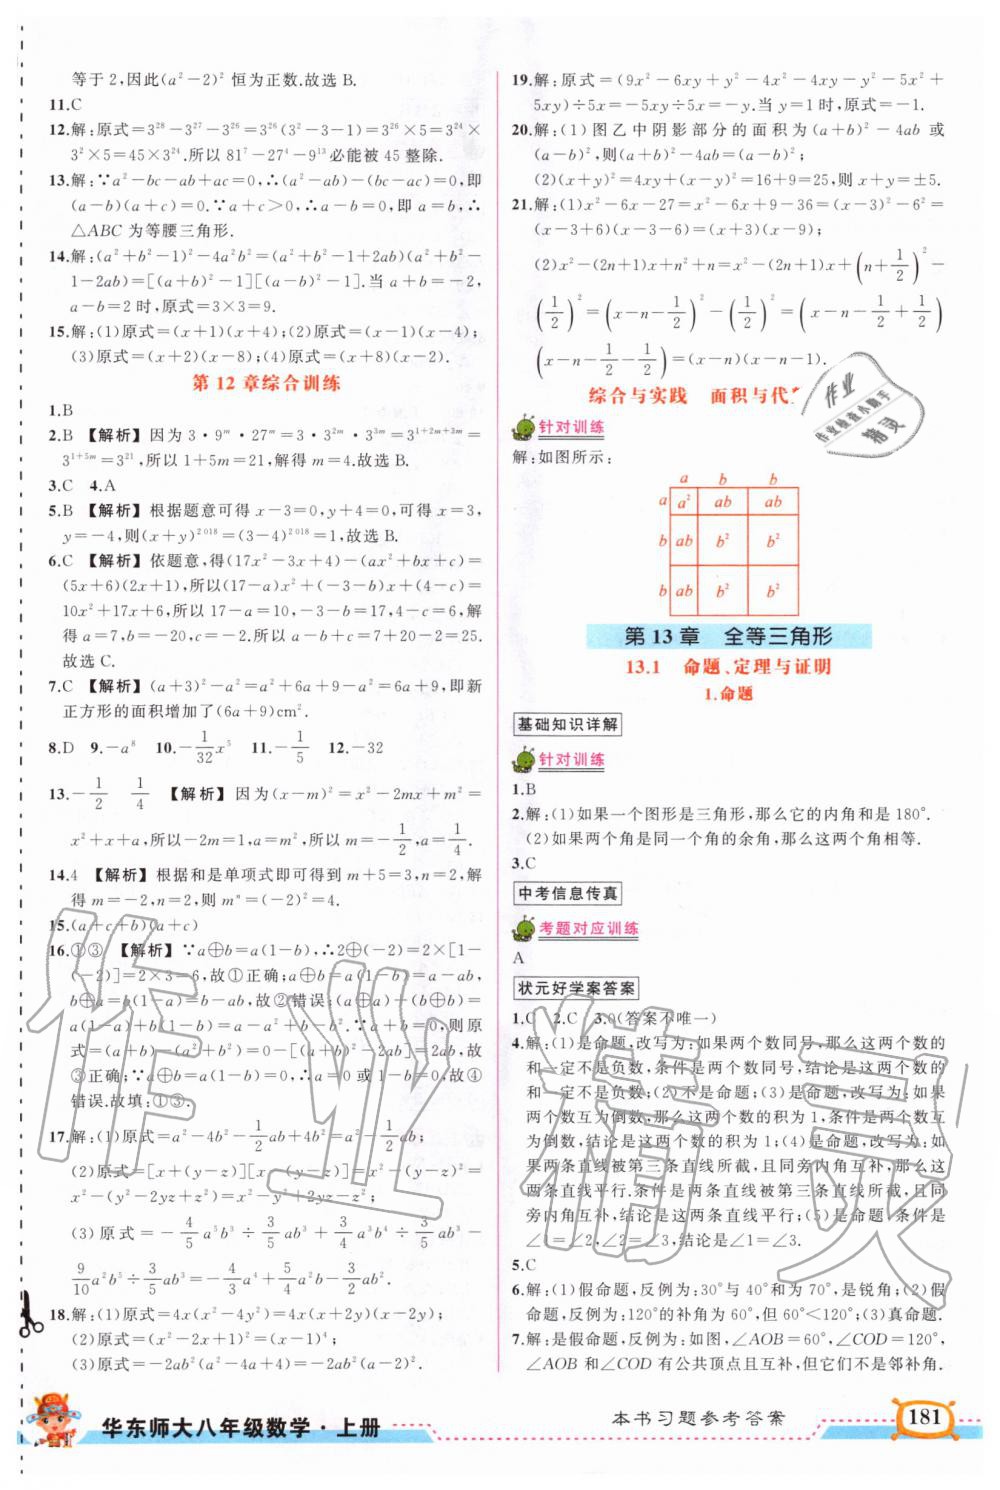 等于2,因此(a²-2)²恒为正数.故选B.
11.C
12.解:原式=3²⁸-3²⁷-3²⁶=3²⁶(3²-3-1)=3²⁶×5=3²⁴×
3²×5=45×3²⁴.所以81⁷-27⁴-9¹³必能被45整除.
13.解:∵a²-bc-ab+ac=0,∴(a²-ab)-(bc-ac)=0,即
(a-b)(a+c)=0.∵a+c>0,∴a-b=0,即a=b,∴
△ABC为等腰三角形.
14.解:(a²+b²-1)²-4a²b²=(a²+b²-1+2ab)(a²+b²-
1-2ab)=[(a+b)²-1][(a-b)²-1].当a+b=-2,
a-b=2时,原式=3×3=9.
15.解:(1)原式=(x+1)(x+4);(2)原式=(x-1)(x-4);
(3)原式=(x+2)(x-8);(4)原式=(x+8)(x-2).
第12章综合训练
1.B
2.B 【解析】因为3·9ᵐ·27ᵐ=3·3²ᵐ·3³ᵐ=3¹⁺²ᵐ⁺³ᵐ=
3¹⁺⁵ᵐ=3²¹,所以1+5m=21,解得m=4.故选B.
3.C 4.A
5.B 【解析】根据题意可得x-3=0,y+4=0,可得x=3,
y=-4,则(x+y)²⁰¹⁸=(3-4)²⁰¹⁸=1,故选B.
6.C 【解析】依题意,得(17x²-3x+4)-(ax²+bx+c)=
(5x+6)(2x+1),所以(17-a)x²+(-3-b)x+(4-c)=
10x²+17x+6,所以17-a=10,-3-b=17,4-c=6,解
得a=7,b=-20,c=-2.所以a+b+c=7+20-2=25.
故选C.
7.C 【解析】(a+3)²-a²=a²+6a+9-a²=6a+9,即新
正方形的面积增加了(6a+9)cm².
8.D 9.-a⁸ 10.-1/32x⁵ 11.-1/5 12.-32
13.-1/2 1/4 【解析】因为(x-m)²=x²-2mx+m²=
x²+x+a,所以-2m=1,a=m²,所以m=-1/2,a=1/4.
14.4 【解析】根据和是单项式即可得到m+5=3,n=2,解
得m=-2,n=2,则mⁿ=(-2)²=4.
15.(a+c+b)(a+c)
16.①③ 【解析】∵a⊕b=a(1-b),∴2⊕(-2)=2×[1-
(-2)]=2×3=6,故①正确;a⊕b=a(1-b)=a-ab,
b⊕a=b(1-a)=b-ab,故②错误;(a⊕a)+(b⊕b)=
a(1-a)+b(1-b)=a-a²+b-b²,∵a+b=0,则原
式=-(a²+b²)=0-[(a+b)²-2ab]=2ab,故
③正确;a⊕b=a(1-b)=0,∴a=0或1-b=0,故④
错误.故填:①③.
17.解:(1)原式=a²-4b²-1/2ab+4b²=a²-1/2ab;
(2)原式=[x+(y-z)][x-(y-z)]=x²-(y-z)²=
x²-(y²-2yz+z²)=x²-y²+2yz-z²;
(3)原式=-4/5a⁵b³÷3/5ab³+4/5a³b⁴÷3/5ab³-
9/10a²b⁵÷3/5ab³=-4/3a⁴+4/3a²b-3/2ab².
18.解:(1)原式=4x(x²-4y²)=4x(x+2y)(x-2y);
(2)原式=(x²-2x+1)²=(x-1)⁴;
(3)原式=-2ab²(a²-4a+4)=-2ab²(a-2)².
19.解:原式=(9x²-6xy+y²-4x²-4xy-y²-5x²+
5xy)÷5x=-5xy÷5x=-y.当y=1时,原式=-1.
20.解:(1)图乙中阴影部分的面积为(a+b)²-4ab或
(a-b)²,则(a+b)²-4ab=(a-b)²;
(2)(x+y)²=4xy+(x-y)²=16+9=25,则x+y=±5.
21.解:(1)x²-6x-27=x²-6x+9-36=(x-3)²-6²=
(x-3+6)(x-3-6)=(x+3)(x-9);
(2)x²-(2n+1)x+n²+n=x²-(2n+1)x+(n+1/2)²-
(1/2)²=(x-n-1/2)²-(1/2)²=(x-n-1/2+1/2)
(x-n-1/2-1/2)=(x-n)(x-n-1).
综合与实践 面积与代
作业
作业检查小助手
精灵
针对训练
解:如图所示:
a b b
a a² ab ab
b ab b² b²
b ab b² b²
第13章 全等三角形
13.1 命题、定理与证明
1.命题
基础知识详解
针对训练
1.B
2.解:(1)如果一个图形是三角形,那么它的内角和是180°.
(2)如果两个角是同一个角的余角,那么这两个角相等.
3.C
中考信息传真
考题对应训练
A
状元好学案答案
1.C 2.C 3.0(答案不唯一)
4.解:(1)是命题,改写为:如果两个数同号,那么这两个数的
和一定不是负数,条件是两个数同号,结论是这两个数的
和一定不是负数;(2)不是命题;(3)是命题,改写为:如果
两个数互为倒数,那么这两个数的积为1,条件是两个数互
为倒数,结论是这两个数的积为1;(4)是命题,改写为:如
果两条直线被第三条直线所截,且同旁内角互补,那么这
两条直线平行.条件是两条直线被第三条直线所截,且同
旁内角互补,结论是这两条直线平行;(5)是命题,条件是
∠1=∠2,∠2=∠3,结论是∠1=∠3.
5.C
6.解:(1)假命题,反例为:30°与40°的和为70°,是锐角;(2)假
命题,反例为:120°的补角为60°,但60°<120°;(3)真命题.
7.解:是假命题,反例为:如图,∠AOB=60°,∠COD=120°,
∠AOB和∠COD有公共顶点且互补,但它们不是邻补角.
作业精灵
华东师大八年级数学·上册
本书习题参考答案
181